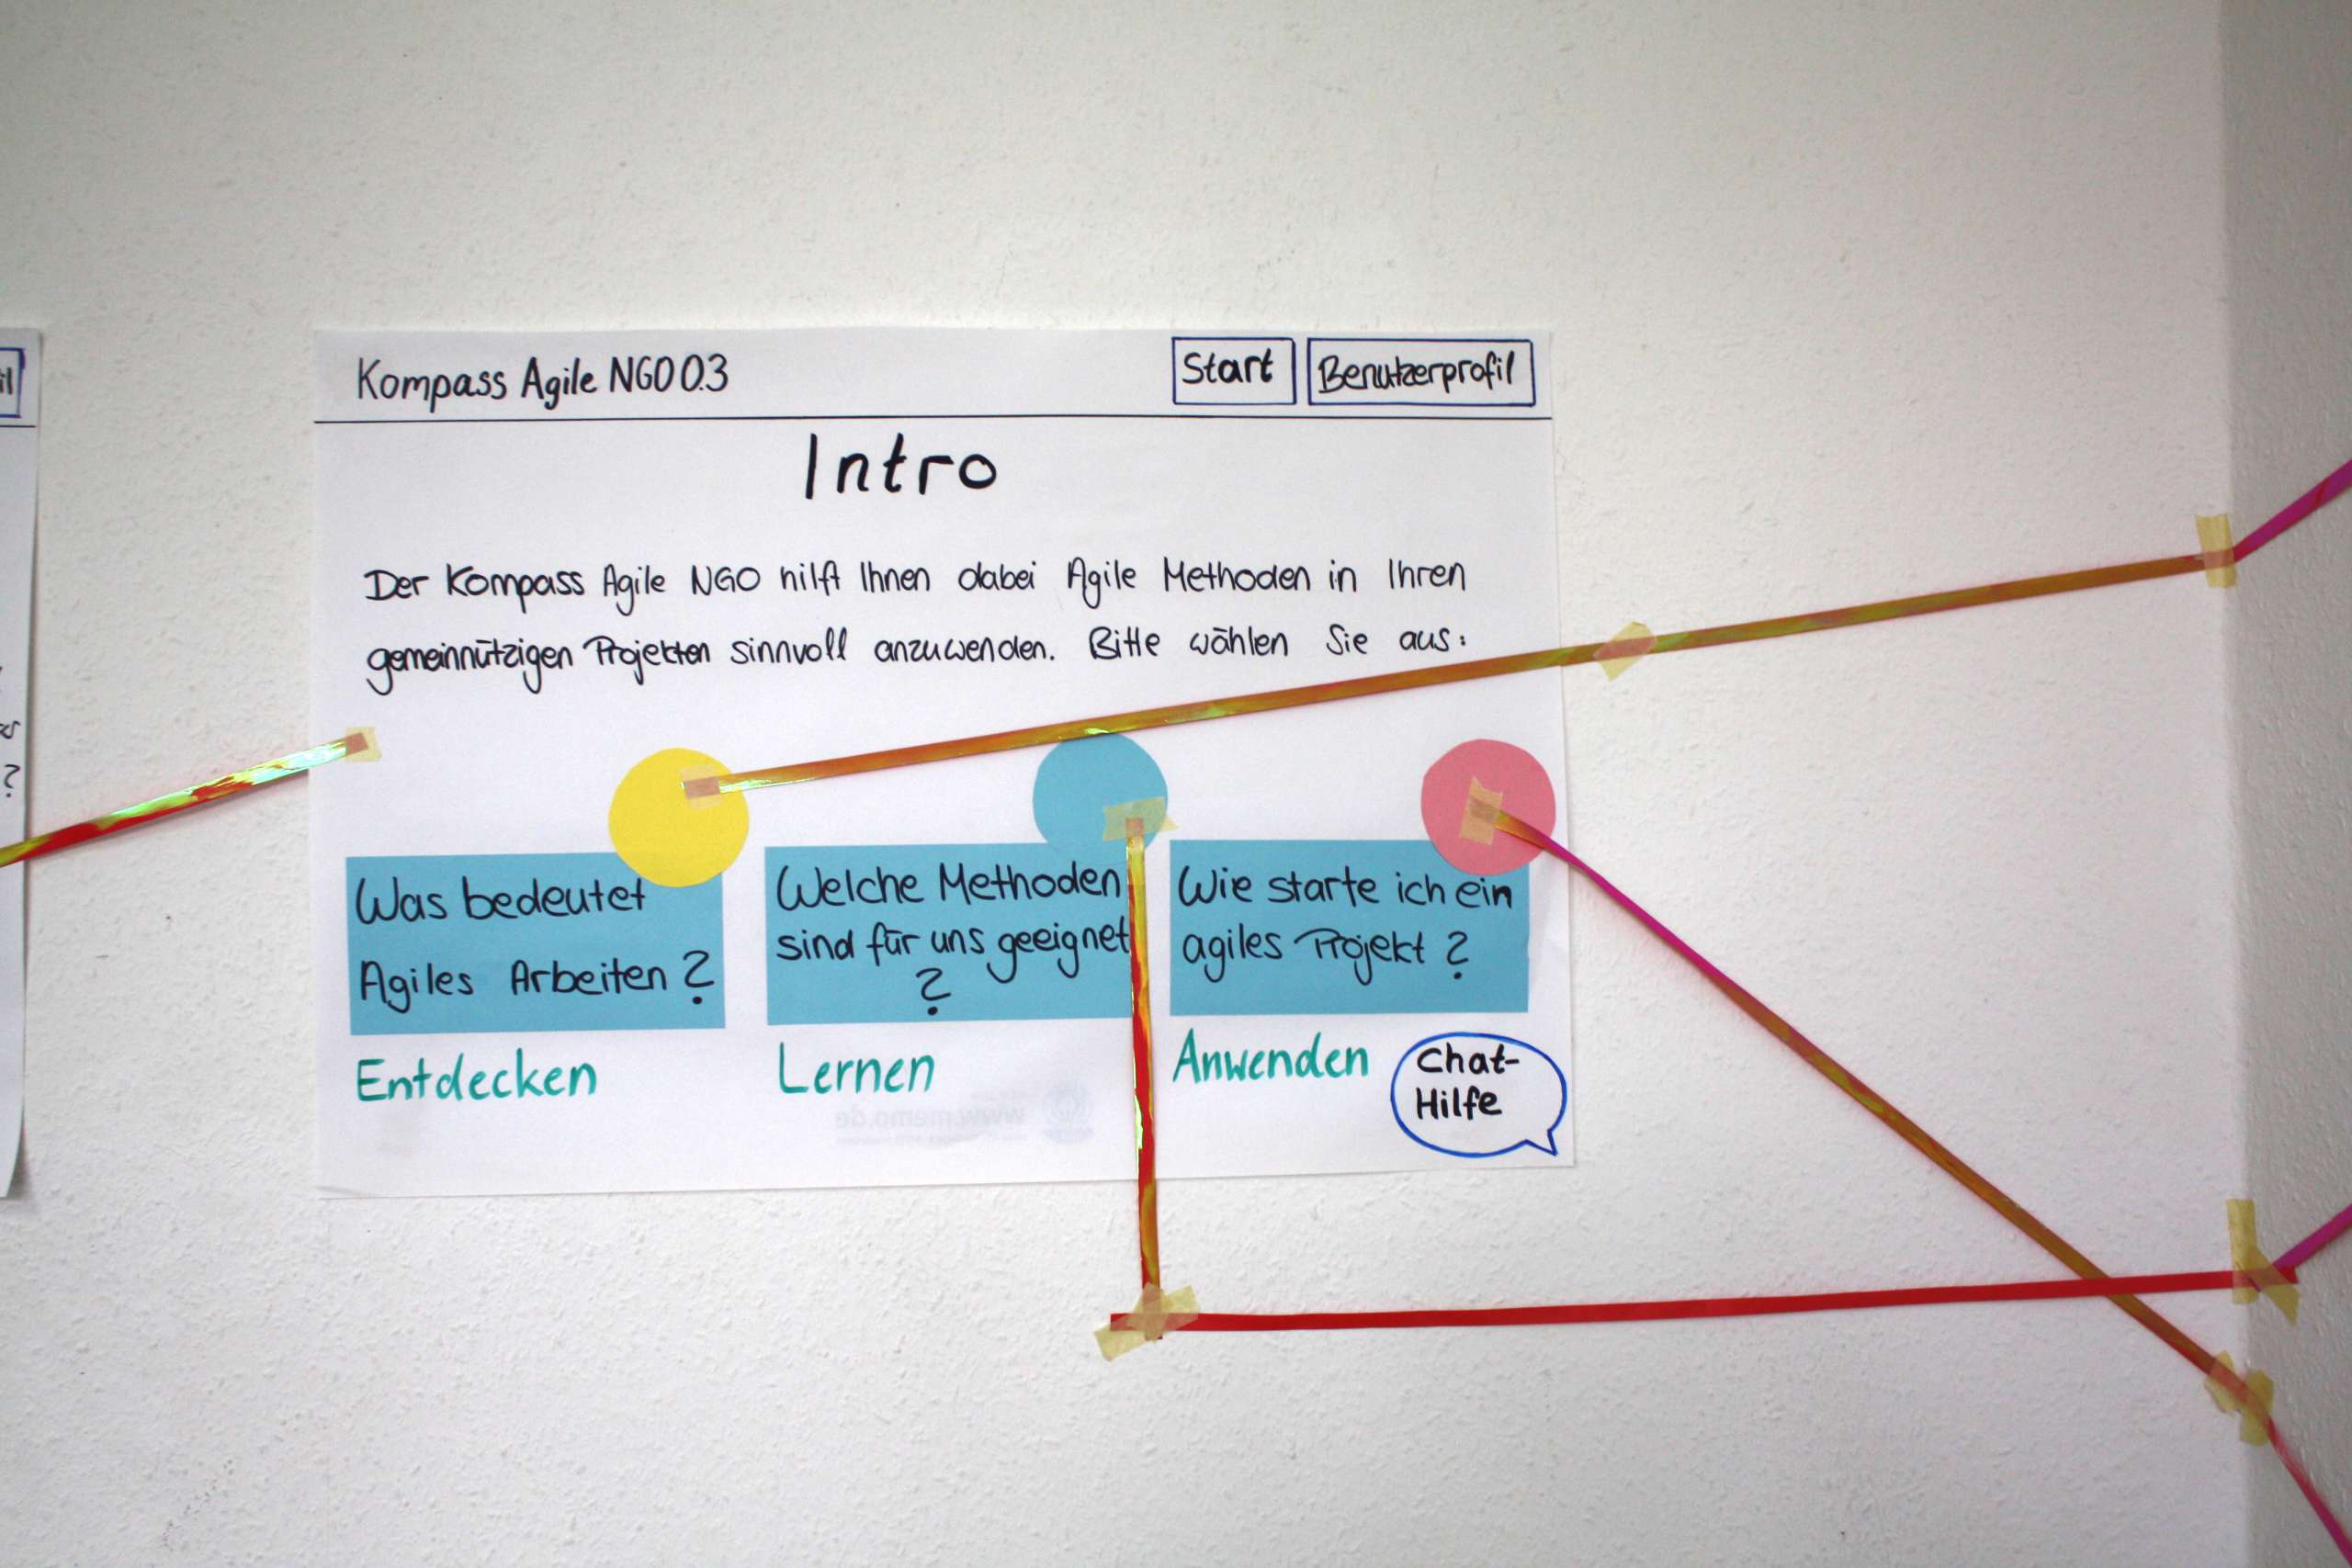 Kompass Agile NGO 0.3
Start
Benutzerprofil
Intro
Der Kompass Agile NGO hilft Ihnen dabei Agile Methoden in Ihren
gemeinnützigen Projekten sinnvoll anzuwenden. Bitte wählen Sie aus:
Was bedeutet
Agiles Arbeiten?
Entdecken
Welche Methoden
sind für uns geeignet
?
Lernen
Wie starte ich ein
agiles Projekt?
Anwenden
Chat-
Hilfe
www.memo.de